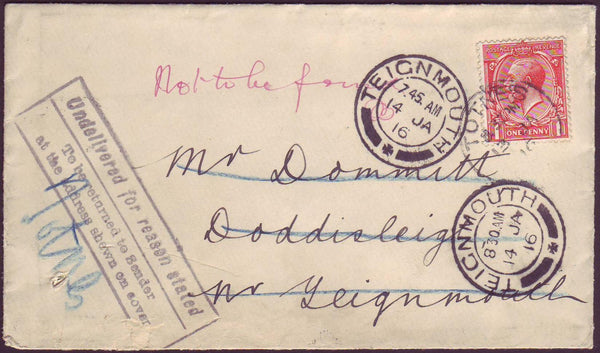 Not to be found
POSTAGE REVENUE
ONE PENNY
TEIGNMOUTH
7.45. AM
14 JA
16
Undelivered for reason stated
To be returned to Sender
at the address shown on cover
Mr Dommitt
Doddisleigh
Nr Teignmouth
TEIGNMOUTH
8 30 AM
14 JA
16